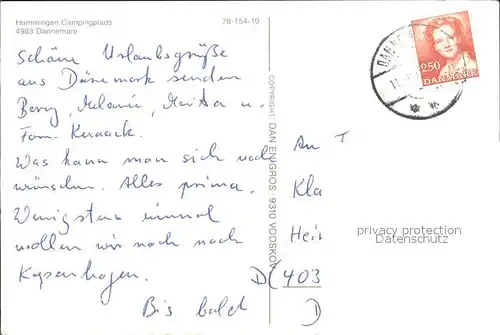 Hummingen Campingplads
4983 Dannemare
78-154-10
Schöne Urlaubsgrüße
aus Dänemark senden
Melanie, u.
Fam. Knaack.
Was kann man sich noch
wünschen. Alles prima.
Wenigstens einmal
wollen wir noch nach
Kopenhagen.
Bis bald
COPYRIGHT: DAN ENGROS · 9310 VODSKOV
250
DANMARK
An
Kla
privacy protection
Datenschutz
D(403
D